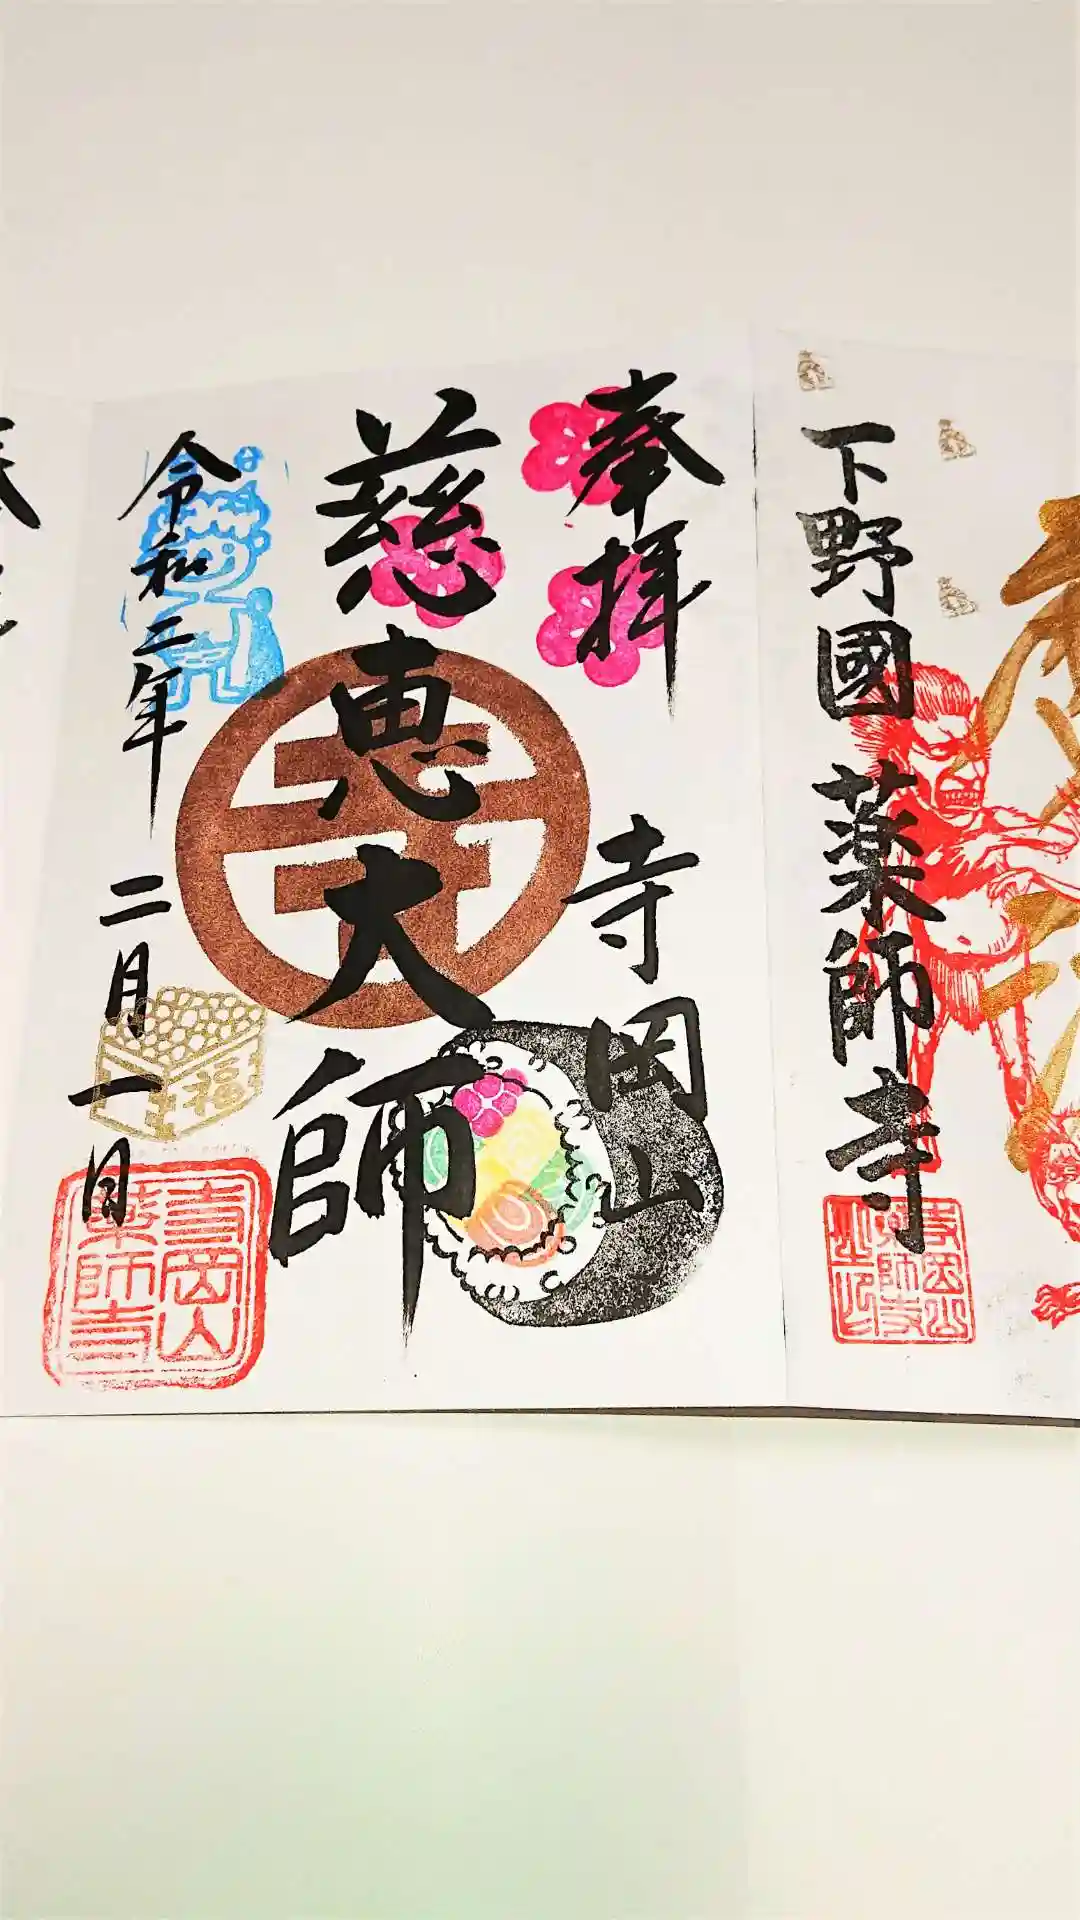 下野國 薬師寺
寺岡山
薬師寺
之印
奉拝
寺岡山
慈恵大師
令和二年 二月一日
福
寺岡山
薬師寺